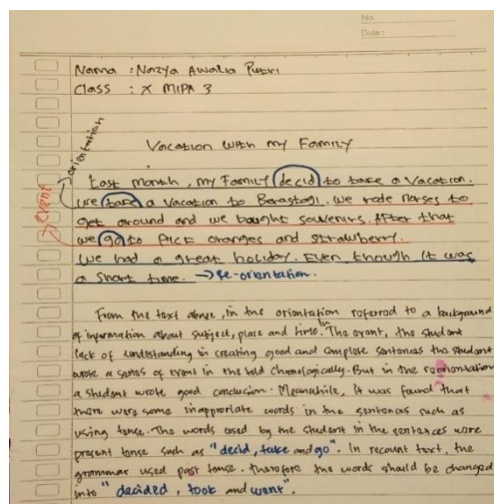 No.
Date :
Nama : Nazya Awalia Putri
Class : X MIPA 3
Vacation with my Family
Last month, my Family decid to take a Vacation.
we take a Vacation to Berastagi. we rode horses to
get around and we bought souvenirs. After that
we go to Pick oranges and strawberry.
we had a great holiday. Even though it was
a short time. → Re-orientation.
orientation
event
From the text above, in the orientation referred to a background
of information about subject, place and time. The event, the student
lack of understanding in creating good and complete sentences the student
wrote a series of event in the told chronologically. But in the reorientation
a student wrote good conclusion. Meanwhile, it was found that
there were some inapproriate words in the sentences such as
using tense. The words used by the student in the sentences were
present tense such as "decid, take and go". In recount text, the
grammar used past tense. therefore the words should be changed
into "decided, took and went".